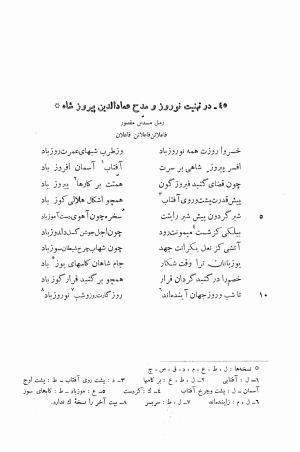 ۴۵ ـ در تهنیت نوروز و مدح عمادالدین پیروز شاه *
رمل مسدّس مقصور
فاعلاتن فاعلاتن فاعلان
خسروا روزت همه نوروز باد وز طرب شبهای عمرت روز باد
افسر پیروز شاهی بر سرت آفتاب۱ آسمان افروز باد
چون قضای گنبد فیروز گون همّتت بر کارها۲ پیروز باد
پیش قدرت پشت و روی آفتاب۳ همچو اشکال هلالی کوز باد
۵ شیر گردون پیش شیر رایتت سخره چون آهوی دست آموز باد
بیلکی کز شست۴ میمونت رود چون اجل جوشن گسل دلدوز باد
آتشی کز نعل یکرانت جهد چون شهاب چرخ شیطان سوز باد
یوزبانان ترا وقت شکار جام شاهان کاسهای یوز باد
خصم را در گنبد گردان قرار همچو بر گنبد قرار گوز باد
۱۰ تا شب و روز جهان آینده‌اند۶ روز گارت روز و شب۷ نوروز باد۸
* نسخه‌ها : ل ، ط ، ع ، م ، د ، ق ، ص ، ج
۱ـ ل : آفتابی ۲ـ ل ، ط ، ع : بر کامها ۳ـ د : پشت روی آفتاب ـ ط : پشت اوج
آسمان ـ ل : پشت وچرخ آفتاب ۴ـ ك : کردست ۵ـ ع : موزباد ـ ط : کارهای سوز
۶ـ ل ، م : زاینده‌اند ۷ـ ل ، ط : سربسر ۸ـ بیت آخر را نسخهٔ ك ندارد.